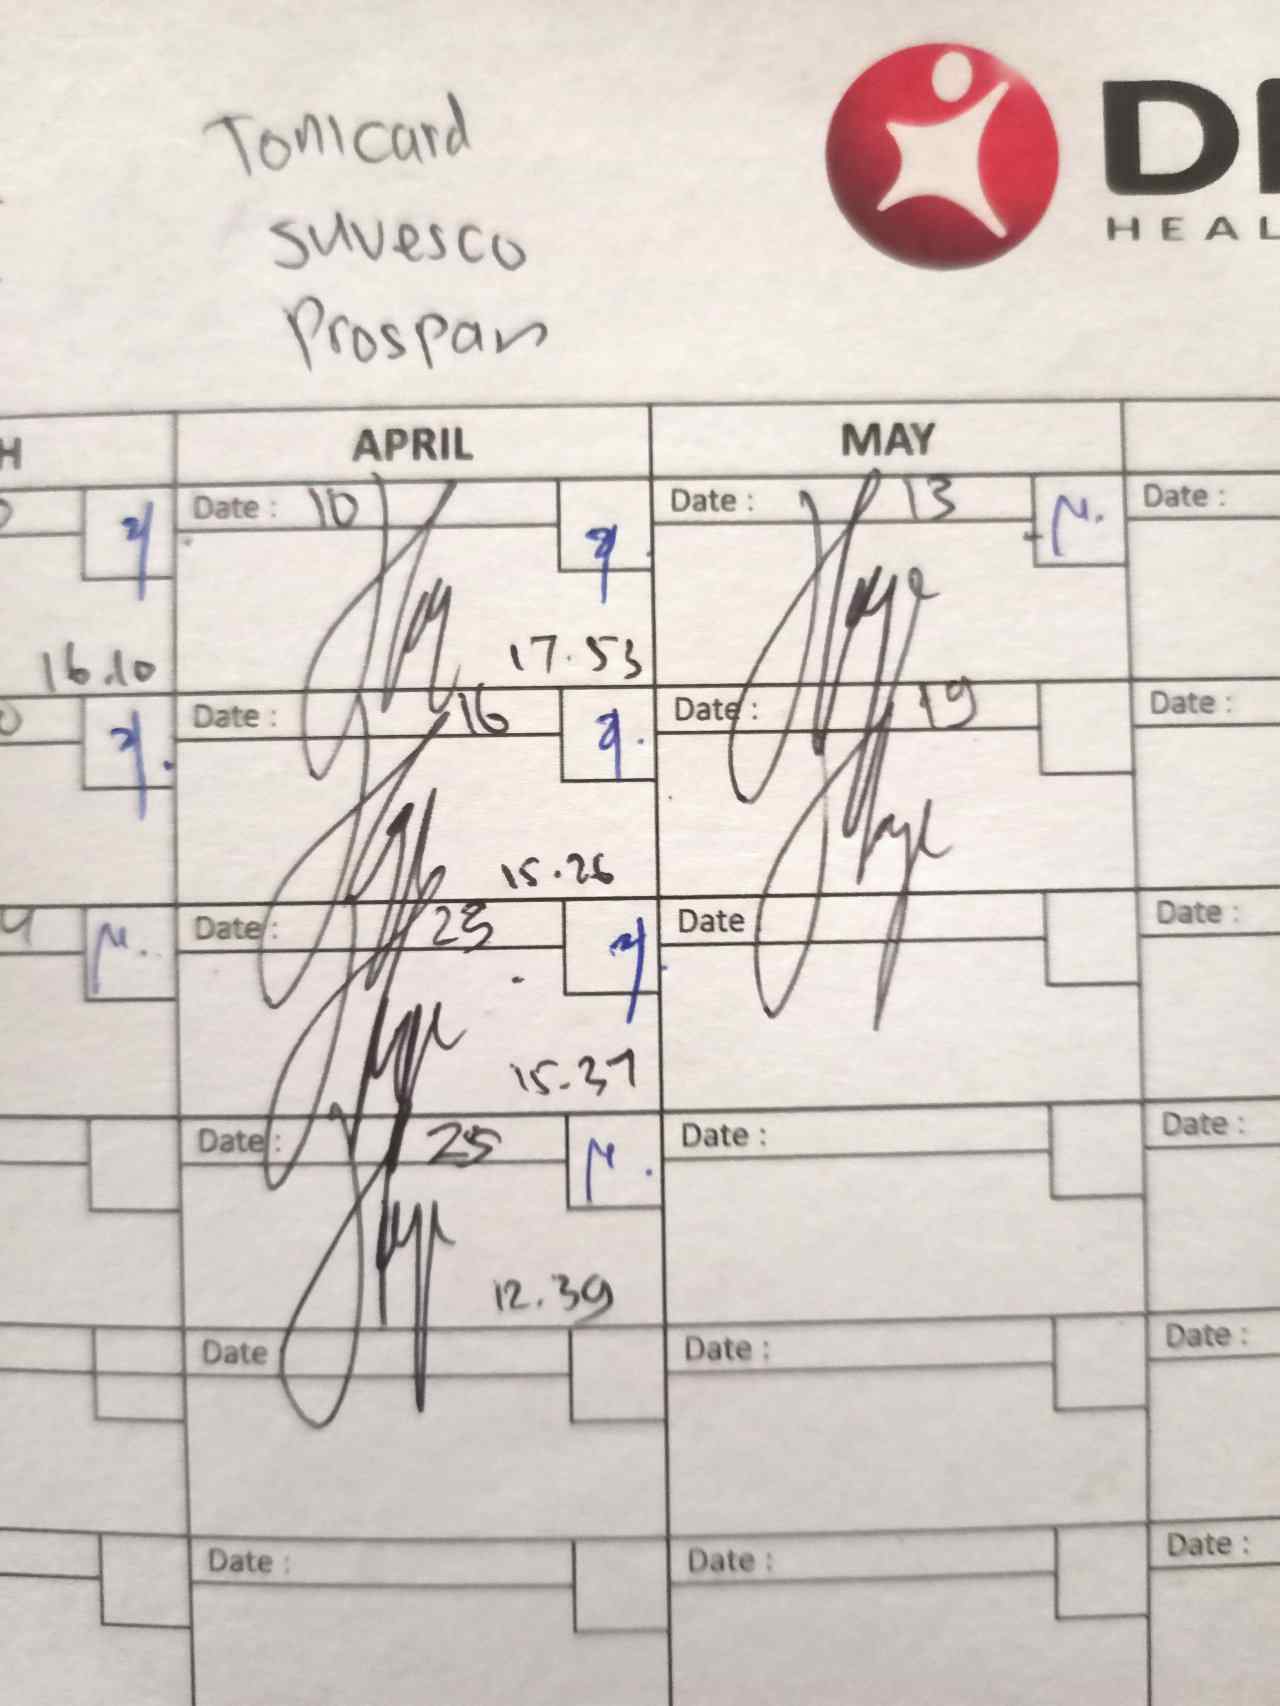 Tonicard
suvesco
Prospan
DI
HEAL
H APRIL MAY
Date : 10 Date : 13 Date :
16.10 17.53
Date : 16 Date : 19 Date :
15.26
Date : Date Date :
15.37
Date : 25 Date : Date :
12.39
Date Date : Date :
Date : Date : Date :